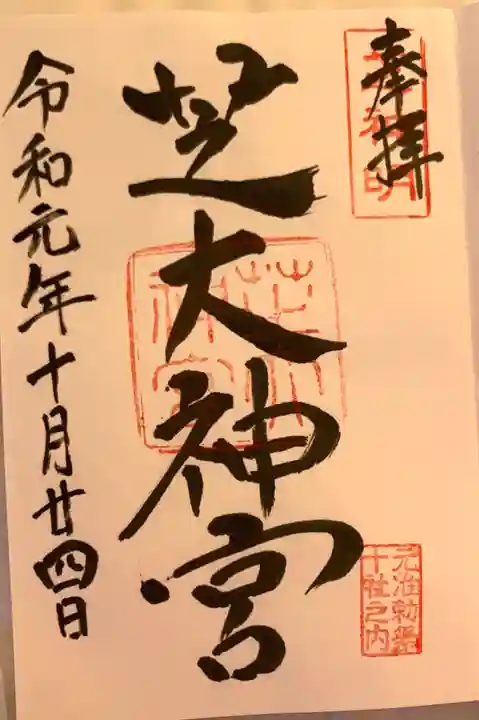 奉拝
元准勅祭
十社之内
芝大神宮
令和元年十月廿四日